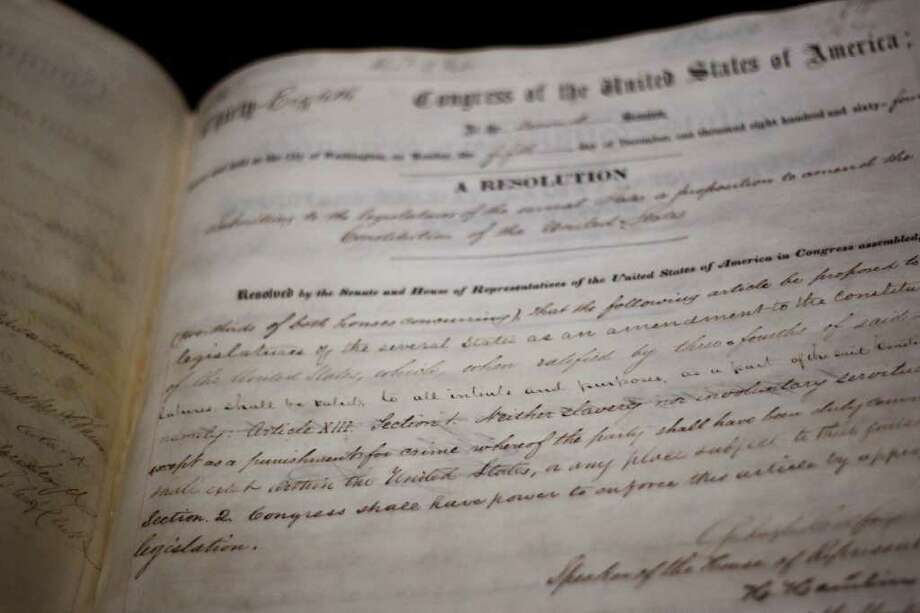 Thirty-Eighth Congress of the United States of America;
At the Second Session,
held at the City of Washington, on Monday, the fifth day of December, one thousand eight hundred and sixty-four
A RESOLUTION
Submitting to the legislatures of the several States a proposition to amend the
Constitution of the United States
Resolved by the Senate and House of Representatives of the United States of America in Congress assembled,
(two-thirds of both houses concurring), that the following article be proposed to
legislatures of the several States as an amendment to the constitu
of the United States, which, when ratified by three-fourths of said
latures shall be valid, to all intents and purposes, as a part of the said Consti
namely: Article XIII. Section 1. Neither slavery nor involuntary servitude
except as a punishment for crime whereof the party shall have been duly conv
shall exist within the United States, or any place subject to their juris
Section. 2. Congress shall have power to enforce this article by appro
legislation.
Speaker of the House of Represent
H. Hamlin